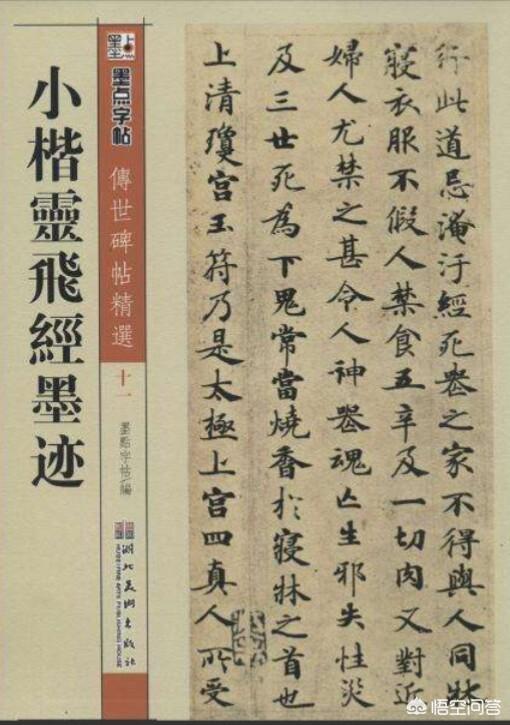 小楷靈飛經墨迹
墨點
墨点字帖
傳世碑帖精選
十一
墨點字帖 編
湖北美術出版社
HUBEI FINE ARTS PUBLISHING HOUSE
行此道忌淹汙經死喪之家不得與人同牀
寢衣服不假人禁食五辛及一切肉又對近
婦人尤禁之甚令人神喪魂亡生邪失性災
及三世死為下鬼常當燒香於寢牀之首也
上清瓊宫玉符乃是太極上宫四真人所受
悟空问答